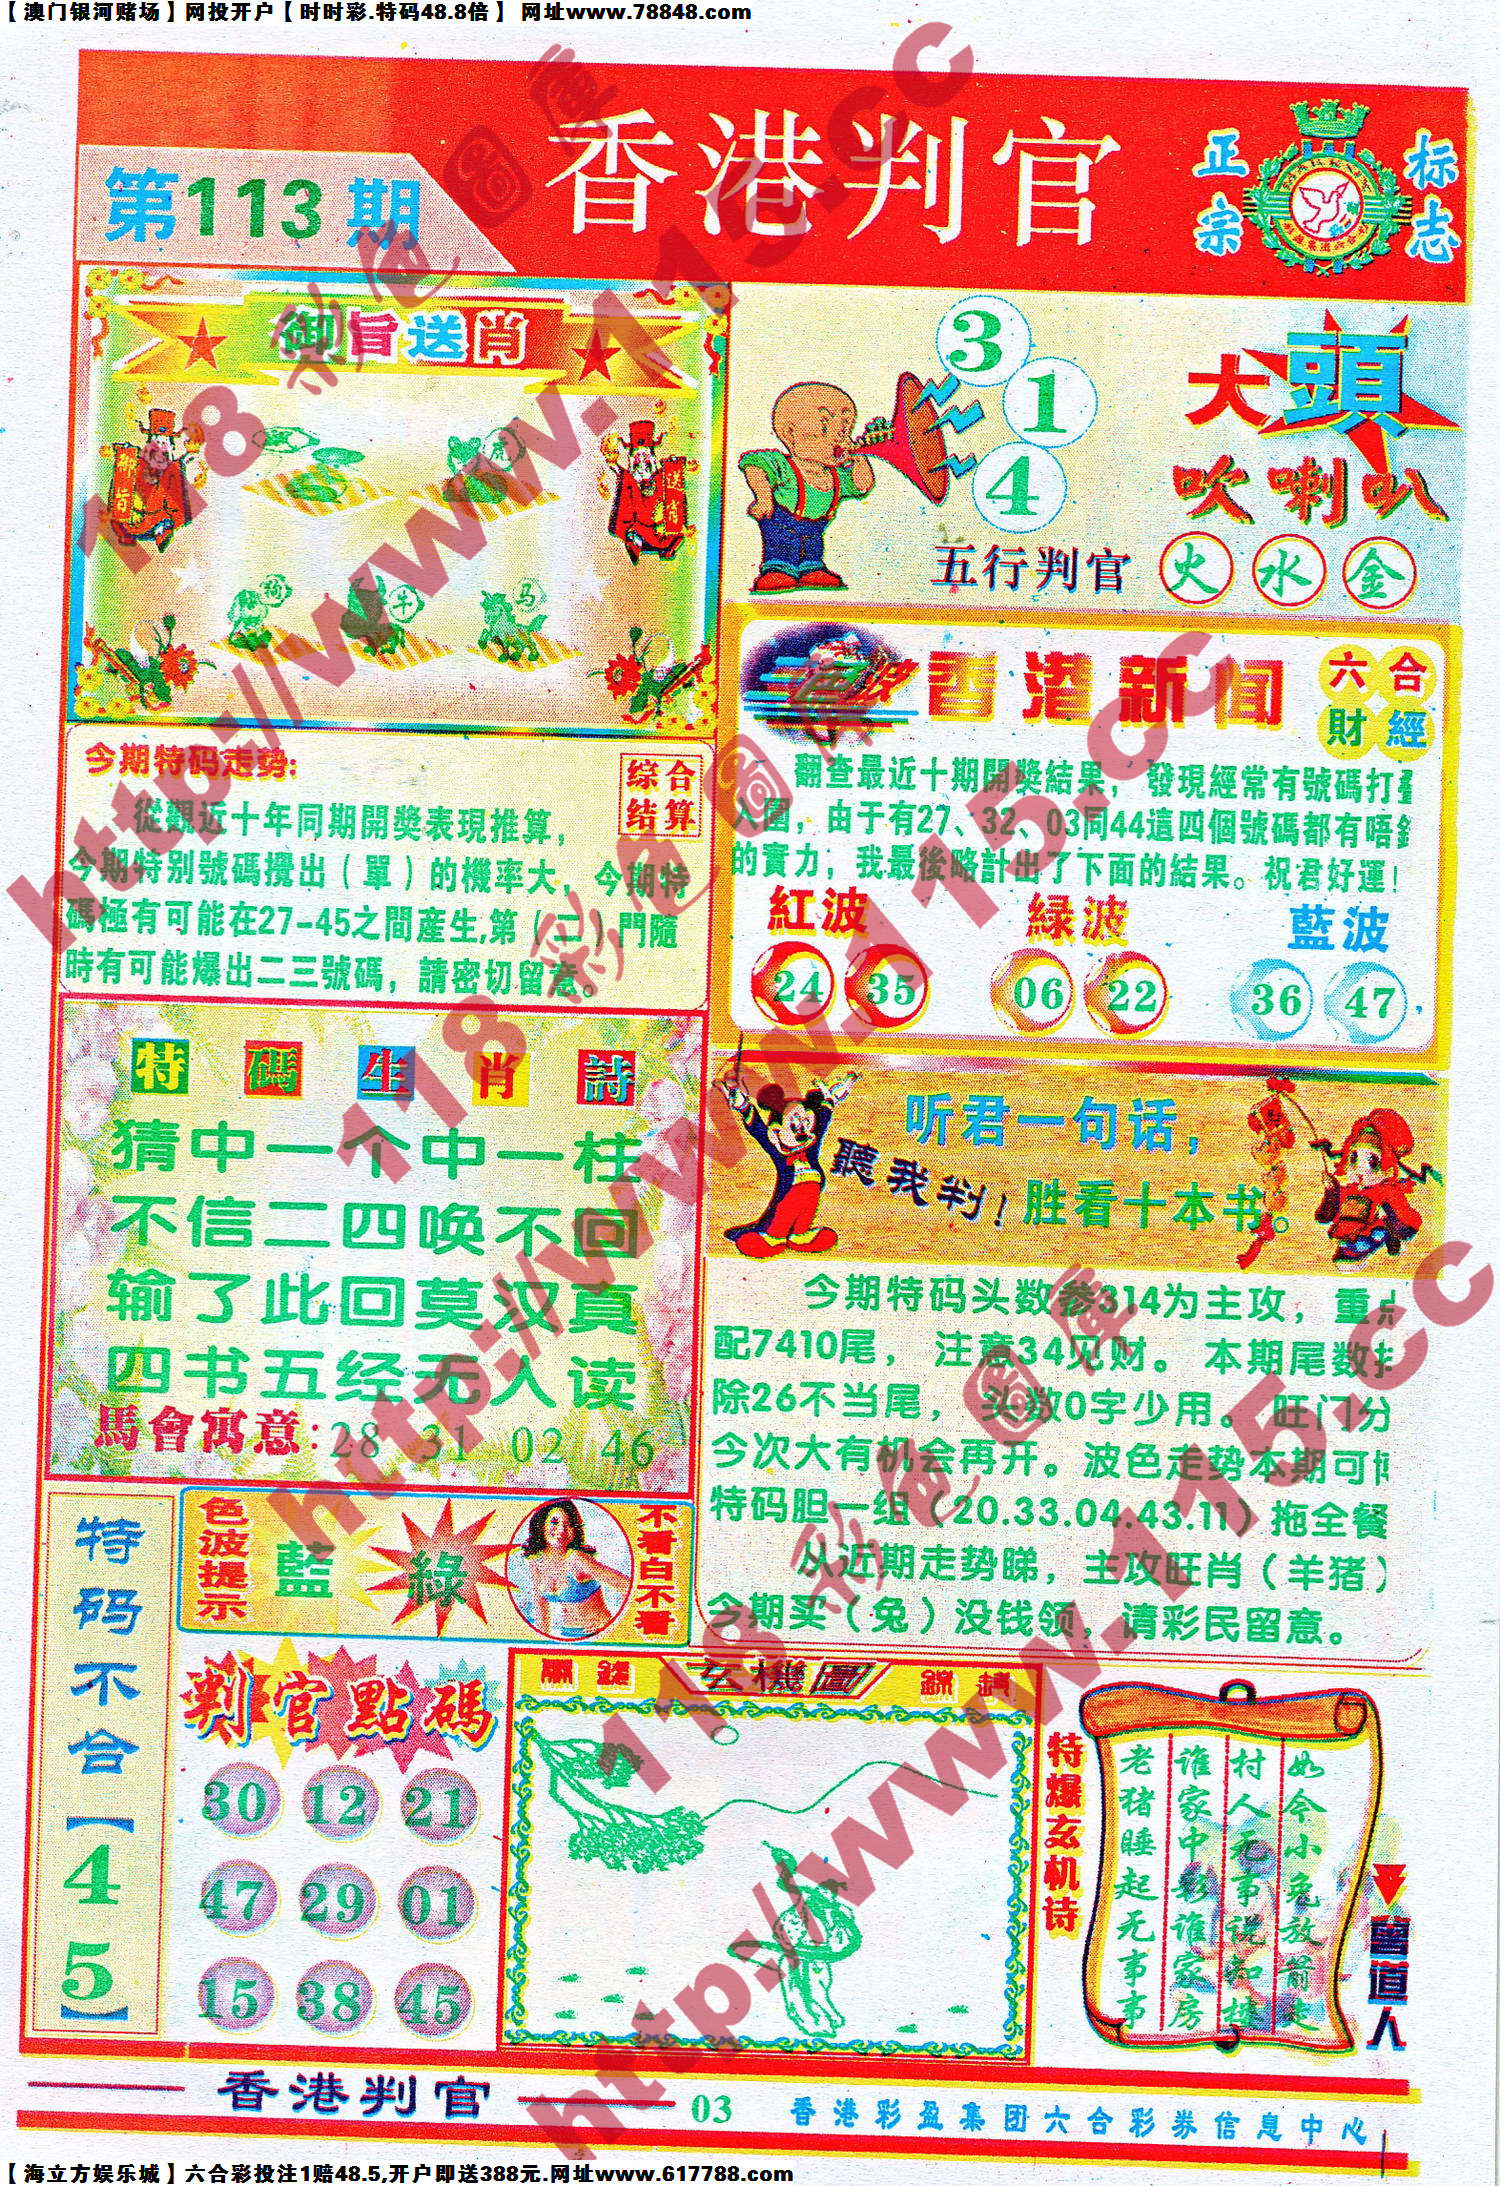 【澳门银河赌场】网投开户【时时彩.特码48.8倍】 网址www.78848.com
香港判官
第113期
正宗
标志
御旨送肖
御旨
送肖
虎
狗
牛
马
3
1
4
大頭
吹喇叭
五行判官 火 水 金
香港新闻
六合
財經
翻查最近十期開獎結果，發現經常有號碼打叠
入圍，由于有27、32、03同44這四個號碼都有唔
的實力，我最後略計出了下面的結果。祝君好運！
紅波 緑波 藍波
24 35 06 22 36 47
今期特码走势:
综合
结算
從觀近十年同期開獎表現推算，
今期特别號碼攪出（單）的機率大，今期特
碼極有可能在27-45之間産生,第（二）門隨
時有可能爆出二三號碼，請密切留意。
特碼生肖詩
猜中一个中一柱
不信二四唤不回
输了此回莫汉真
四书五经无人读
馬會寓意: 28 31 02 46
聽我判！
听君一句话，
胜看十本书。
今期特码头数参314为主攻，重
配7410尾，注意34见财。本期尾数
除26不当尾，头数0字少用。旺门分
今次大有机会再开。波色走势本期可
特码胆一组（20.33.04.43.11）拖全餐
从近期走势睇，主攻旺肖（羊猪）
今期买（兔）没钱领，请彩民留意。
特码不合【45】
色波提示
藍 綠
不看白不看
判官點碼
30 12 21
47 29 01
15 38 45
玄機圖
特爆玄机诗
如今小兔放箭走
村人无事说知撻
谁家中彩谁家房
老猪睡起无事事
曾道人
香港判官
03
香港彩盈集团六合彩券信息中心
【海立方娱乐城】六合彩投注1赔48.5,开户即送388元.网址www.617788.com
118彩色圖庫
http://www.115.cc
118彩色圖庫
http://www.115.cc
118彩色圖庫
http://www.115.cc